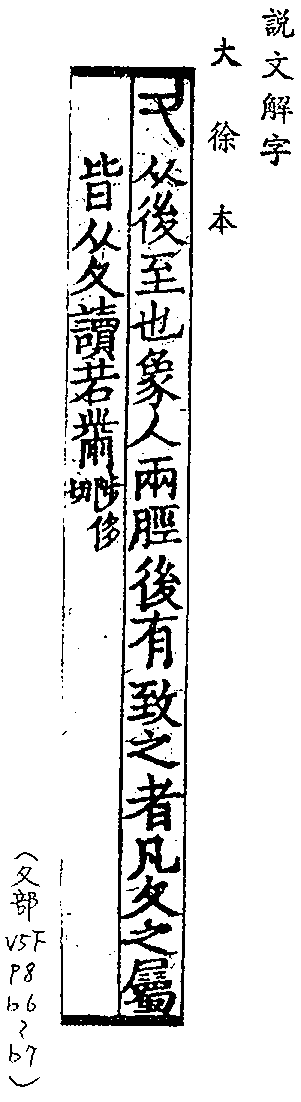 説文解字
大徐本
夂从後至也象人兩脛後有致之者凡夂之屬
皆从夂讀若黹陟侈切
(夂部V5FP8b6~b7)